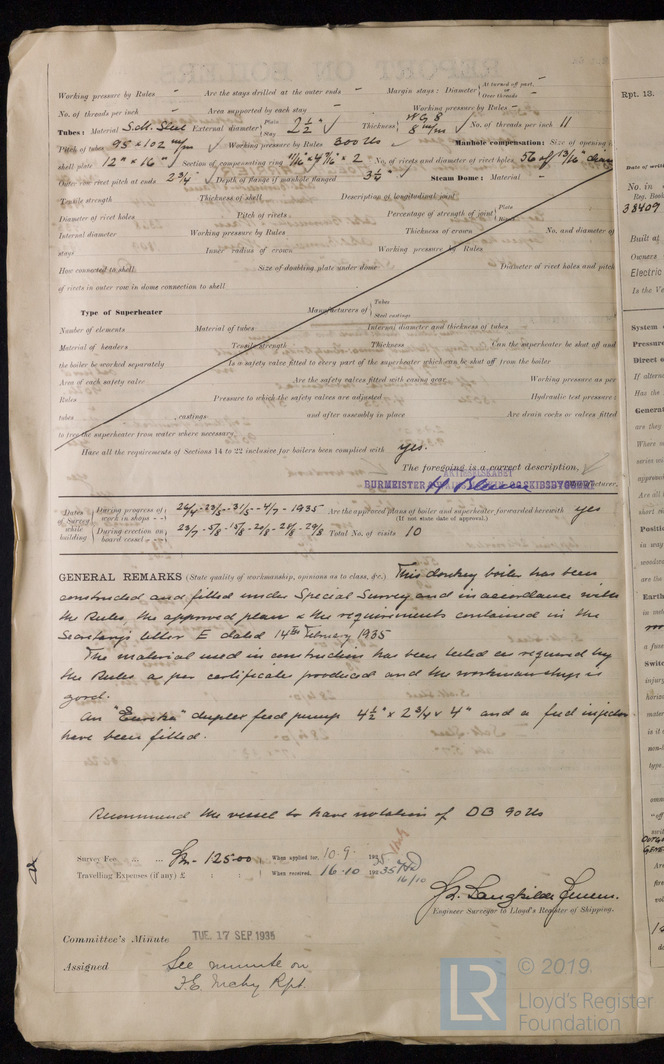 Working pressure by Rules - Are the stays drilled at the outer ends - Margin stays: Diameter { At turned off part, - Over threads -
No. of threads per inch - Area supported by each stay - Working pressure by Rules -
Tubes: Material S.M. Steel External diameter { Plain Stay 2 1/2" Thickness { WG 8 8 m/m No. of threads per inch 11
Pitch of tubes 95 x 102 m/m Working pressure by Rules 300 lbs Manhole compensation: Size of opening in
shell plate 12" x 16" Section of compensating ring No. of rivets and diameter of rivet holes 56 of 13/16"
Outer row rivet pitch at ends 2 3/4" Depth of flange if manhole flanged 3 1/2" Steam Dome: Material -
Tensile strength Thickness of shell Description of longitudinal joint
Diameter of rivet holes Pitch of rivets Percentage of strength of joint { Plate Rivets
Internal diameter Working pressure by Rules Thickness of crown No. and diameter of
stays Inner radius of crown Working pressure by Rules
How connected to shell Size of doubling plate under dome Diameter of rivet holes and pitch
of rivets in outer row in dome connection to shell
Type of Superheater Manufacturers of { Tubes Steel castings
Number of elements Material of tubes Internal diameter and thickness of tubes
Material of headers Tensile strength Thickness Can the superheater be shut off and
the boiler be worked separately Is a safety valve fitted to every part of the superheater which can be shut off from the boiler
Area of each safety valve Are the safety valves fitted with easing gear Working pressure as per
Rules Pressure to which the safety valves are adjusted Hydraulic test pressure:
tubes , castings and after assembly in place Are drain cocks or valves fitted
to free the superheater from water where necessary,
Have all the requirements of Sections 14 to 22 inclusive for boilers been complied with yes.
The foregoing is a correct description,
AKTIESELSKABET
BURMEISTER & SKIBSBYGGERI Manufacturer.
Dates of Survey while building { During progress of work in shops - - 26/4 - 23/5 - 31/5 - 4/7 - 1935 Are the approved plans of boiler and superheater forwarded herewith yes
(If not state date of approval.)
During erection on board vessel - - - 23/7 - 5/8 - 15/8 - 20/8 - 28/8 - 29/8 Total No. of visits 10
GENERAL REMARKS (State quality of workmanship, opinions as to class, &c.) This donkey boiler has been
constructed and fitted under Special Survey and in accordance with
the Rules, the approved plan & the requirements contained in the
Secretary's letter E dated 14th February 1935
The material used in construction has been tested as required by
the Rules as per certificate produced and the workmanship is
good.
An "Eureka" duplex feed pump 4 1/2" x 2 3/4 x 4" and a feed injector
have been fitted.
Recommend the vessel to have notation of DB 90 lbs
Survey Fee ... ... Kr. 125.00 When applied for, 10.9. 1935
Travelling Expenses (if any) £ : : When received, 16.10 1935 16/10
Engineer Surveyor to Lloyd's Register of Shipping.
Committee's Minute TUE. 17 SEP 1935
Assigned See minute on
F.E. Mchy Rpt.
Rpt. 13.
Date of writing
No. in
Reg. Book
38409
Built at
Owners
Electric
Is the Ve
System
Pressure
Direct
If altern
Has the
Genera
are they
Where
series
approve
Are all
short ri
Positio
in way
are the
Earth
in met
a fuse
Switc
injury
horiz
mater
is it
non-i
type
© 2019.
LR
Lloyd's Register
Foundation